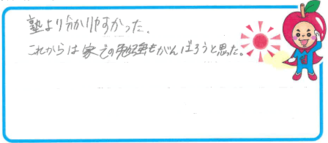 塾より分かりやすかった。
これからは家での勉強もがんばろうと思った。